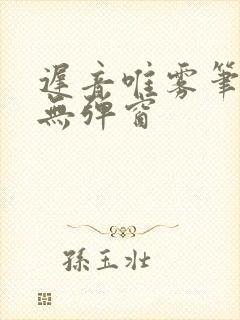 遲音唯雾筆
無弹窗
孫玉壮